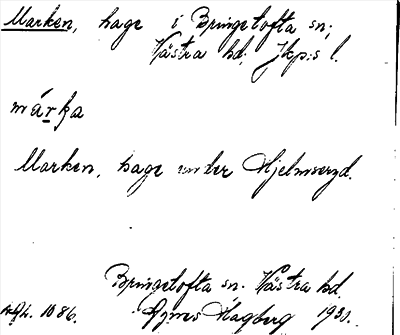 Marken, hage i Bringetofta sn;
Västra hd. Jkp:s l.
märka
Marken, hage under Hjelmseryd.
Bringetofta sn. Västra hd.
Agnes Hagberg 1931.
1086.